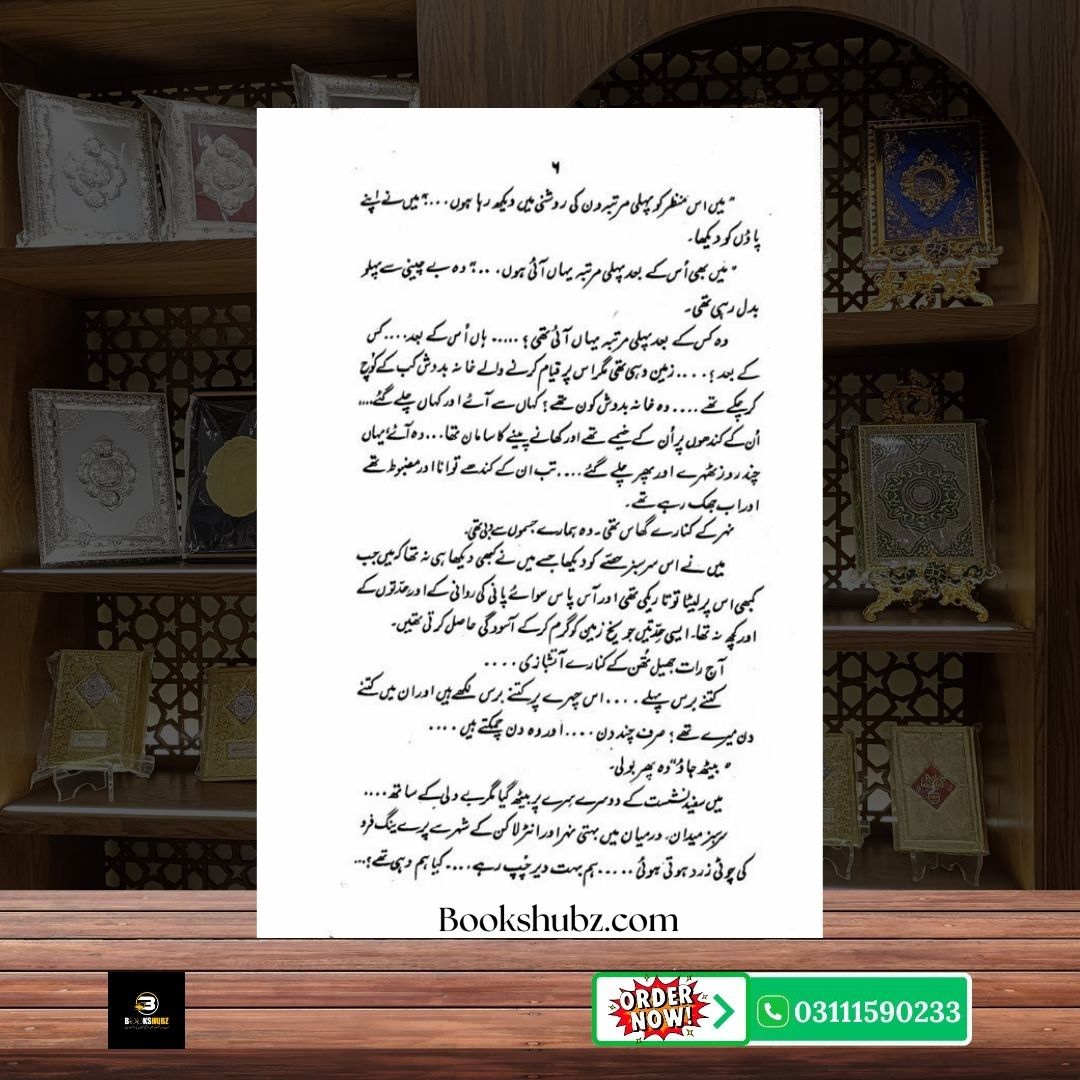 ۶
" میں اس منظر کو پہلی مرتبہ دن کی روشنی میں دیکھ رہا ہوں...." میں نے اپنے
پاؤں کو دیکھا۔
" میں بھی اُس کے بعد پہلی مرتبہ یہاں آئی ہوں...." وہ بے چینی سے پہلو
بدل رہی تھی۔
وہ کس کے بعد پہلی مرتبہ یہاں آئی تھی؟ ..... ہاں اُس کے بعد.... کس
کے بعد؟.... زمین وہی تھی مگر اس پر قیام کرنے والے خانہ بدوش کب کے کوُچ
کر چکے تھے.... وہ خانہ بدوش کون تھے؟ کہاں سے آئے اور کہاں چلے گئے....
اُن کے کندھوں پر اُن کے خیمے تھے اور کھانے پینے کا سامان تھا... وہ آئے، یہاں
چند روز ٹھہرے اور پھر چلے گئے.... تب ان کے کندھے توانا اور مضبوط تھے
اور اب جھک رہے تھے۔
نہر کے کنارے گھاس تھی۔ وہ ہمارے جسموں سے دبی تھی۔
میں نے اس سرسبز حصّے کو دیکھا جسے میں نے کبھی دیکھا ہی نہ تھا کہ میں جب
کبھی اس پر لیٹا تو تاریکی تھی اور آس پاس سوائے پانی کی روانی کے اور حدّتوں کے
اور کچھ نہ تھا۔ ایسی حِدّتیں جو یخ زمین کو گرم کر کے آسودگی حاصل کرتی تھیں۔
آج رات جھیل تھُن کے کنارے آتشبازی....
کتنے برس پہلے.... اس چہرے پر کتنے برس لکھے ہیں اور ان میں کتنے
دن میرے تھے؟ صرف چند دن.... اور وہ دن چمکتے ہیں....
" بیٹھ جاؤ" وہ پھر بولی۔
میں سفید نشست کے دوسرے سرے پر بیٹھ گیا مگر بے دلی کے ساتھ....
سرسبز میدان، درمیان میں بہتی نہر اور انٹرلاکن کے شہر سے پرے ینگ فرو
کی چوٹی زرد ہوتی ہوئی..... ہم بہت دیر چُپ رہے.... کیا ہم وہی تھے؟...
Bookshubz.com
B
BOOKSHUBZ
ORDER NOW!
03111590233